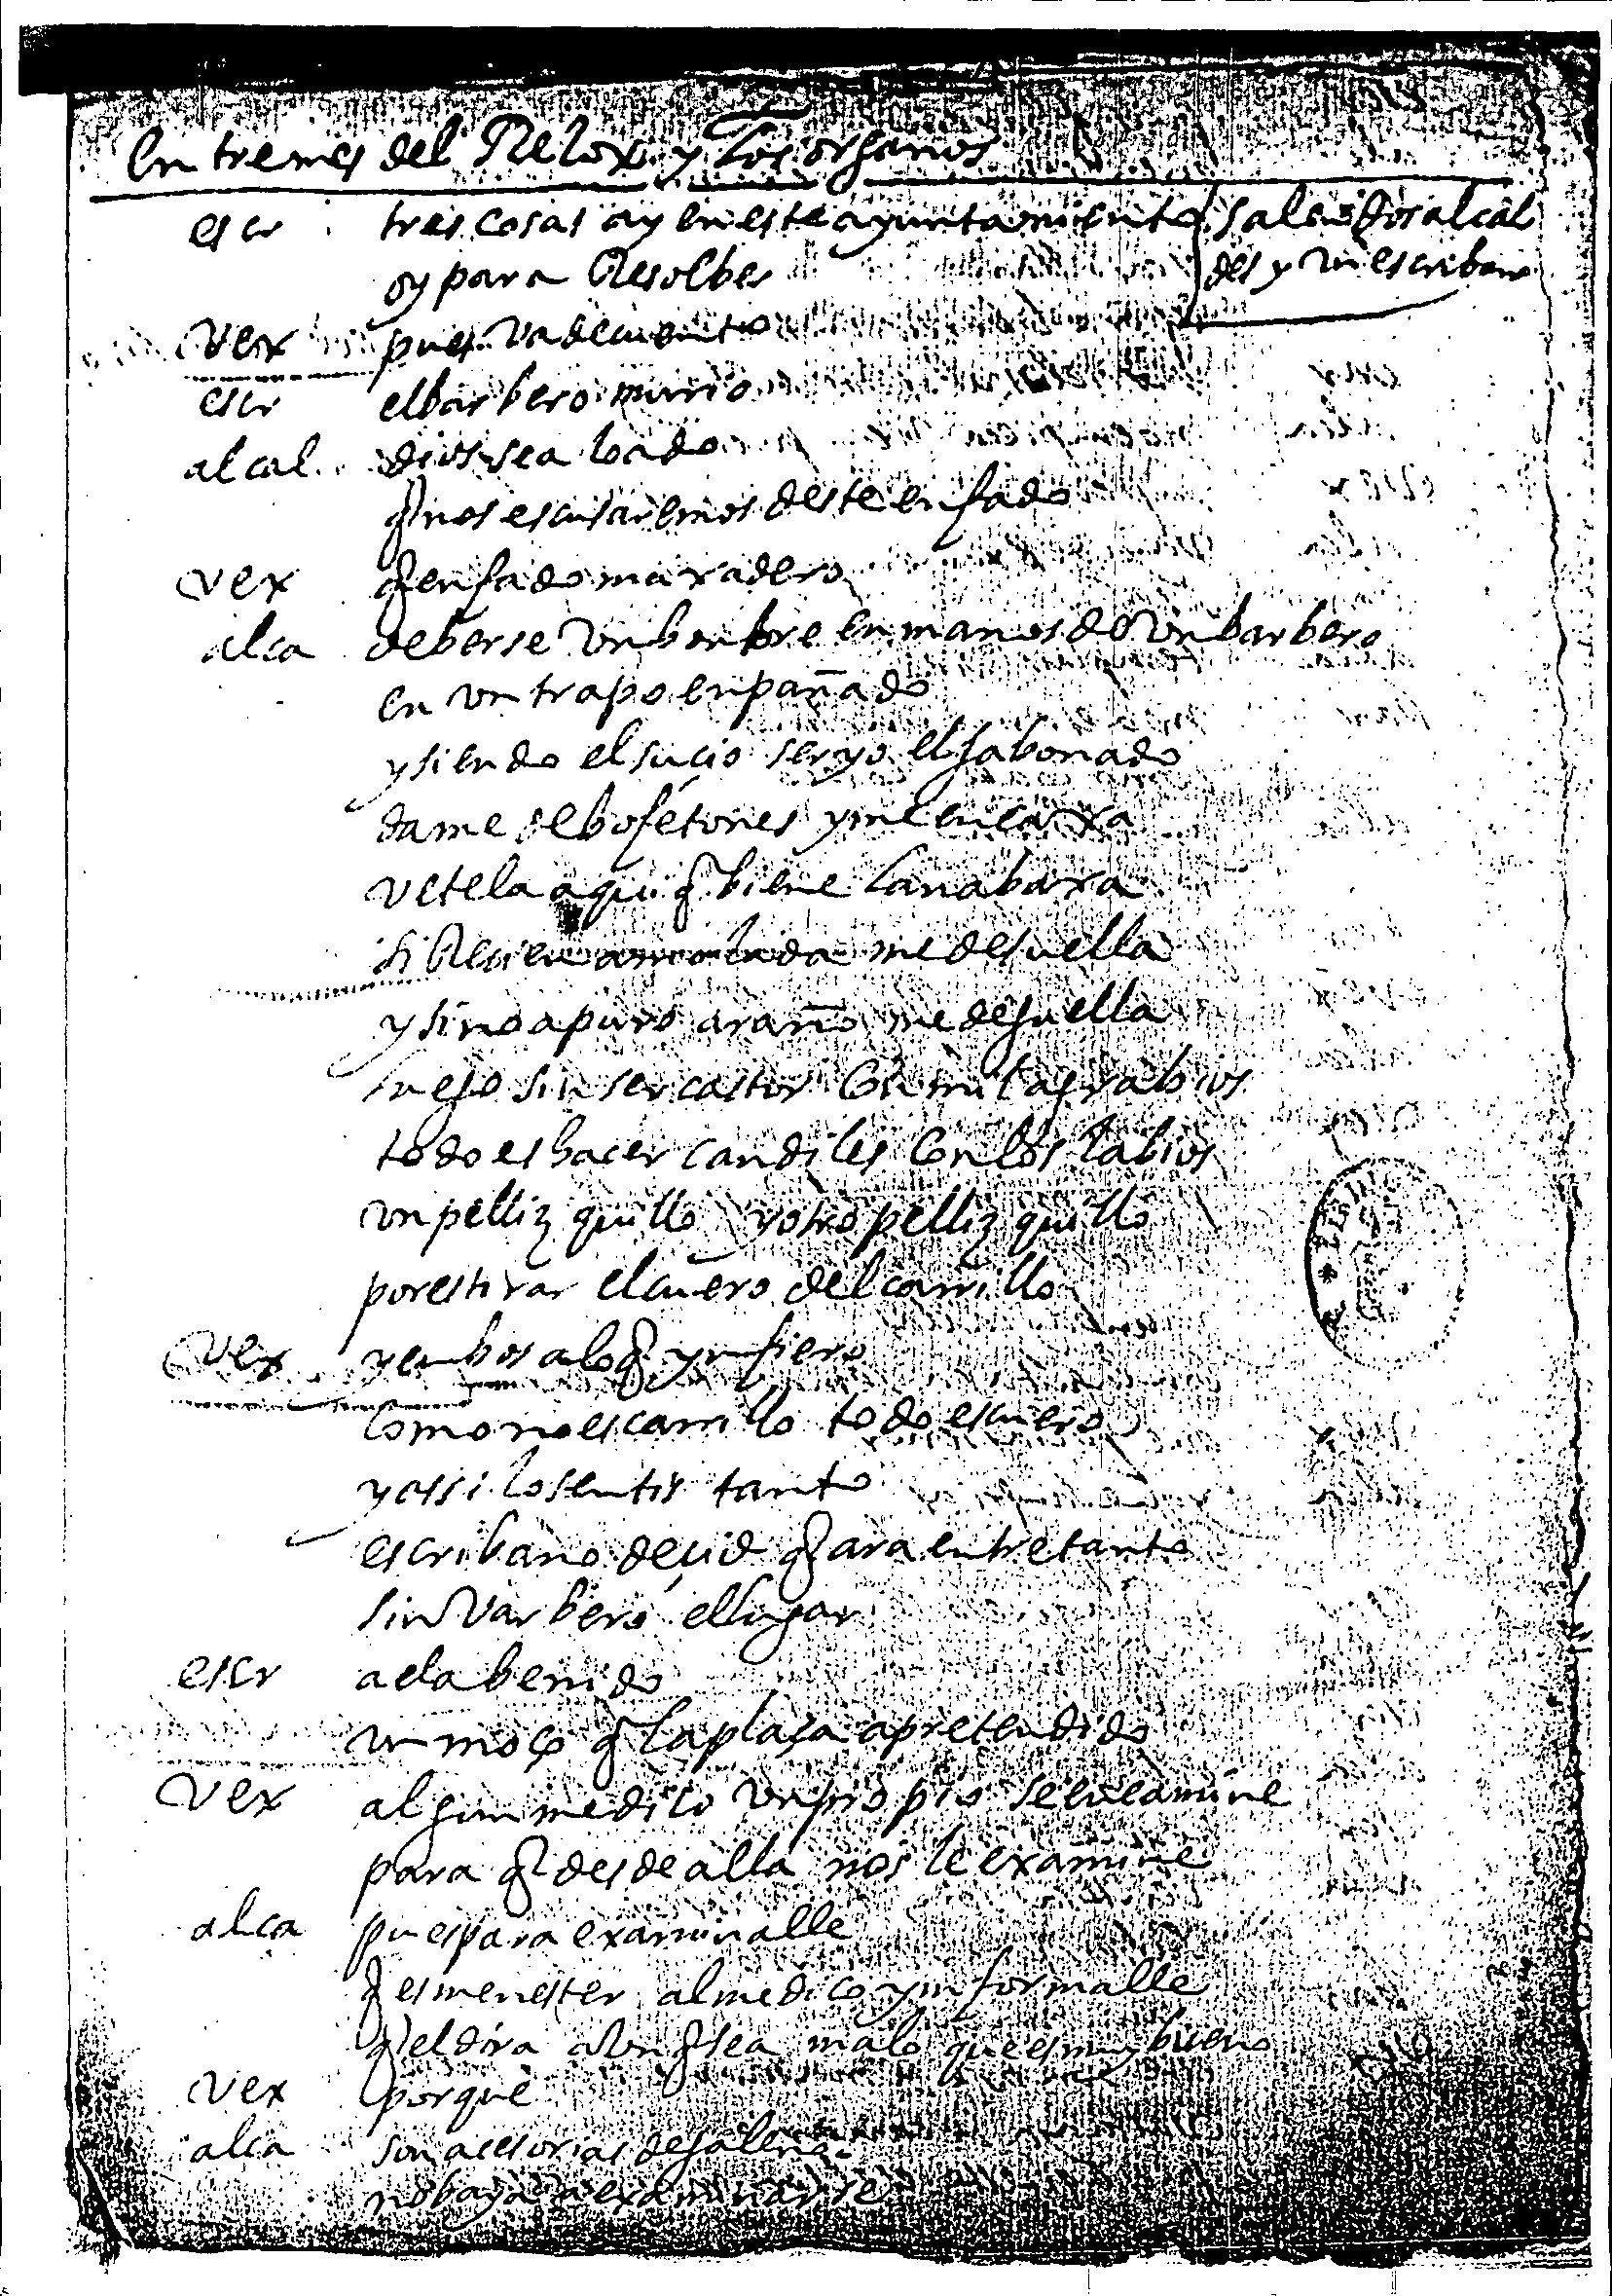 Entremes del Relox y los organos
escr tres cosas ay en este ayuntamiento
sale dos alcal
des y un escribano
oy para Resolber
vex pues va de cuento
escr el barbero murio
alcal dios sea loado
q nos escusaremos deste enfado
vex q enfado maxadero
alca deberse un honbre en manos de un barbero
en un trapo enpañado
y siendo el sucio ser yo el jabonado
dame de bofetones y me encaxa
vetela aqui q biene la nabaxa
si Recien amolada me desuella
y si no a puro araño me desuella
luego sin ser castor con mil agrabios
todo es hacer candiles con los labios
un pellizquillo y otro pellizquillo
por estirar el cuero del carrillo
vex y en bos a lo q ynfiero
como no es carrillo todo es cuero
y assi lo sentis tanto
escribano decid q ara entre tanto
sin varbero el lugar
escr acla benido
un moço q la plaça a pretendido
vex algun medico un propio se encamine
para q desde alla nos le examine
alca pues para examinalle
q es menester al medico ynformalle
q el dira aunq sea malo que es muy bueno
vex porque
alca son acesorias de galeno
no baya a examinarse